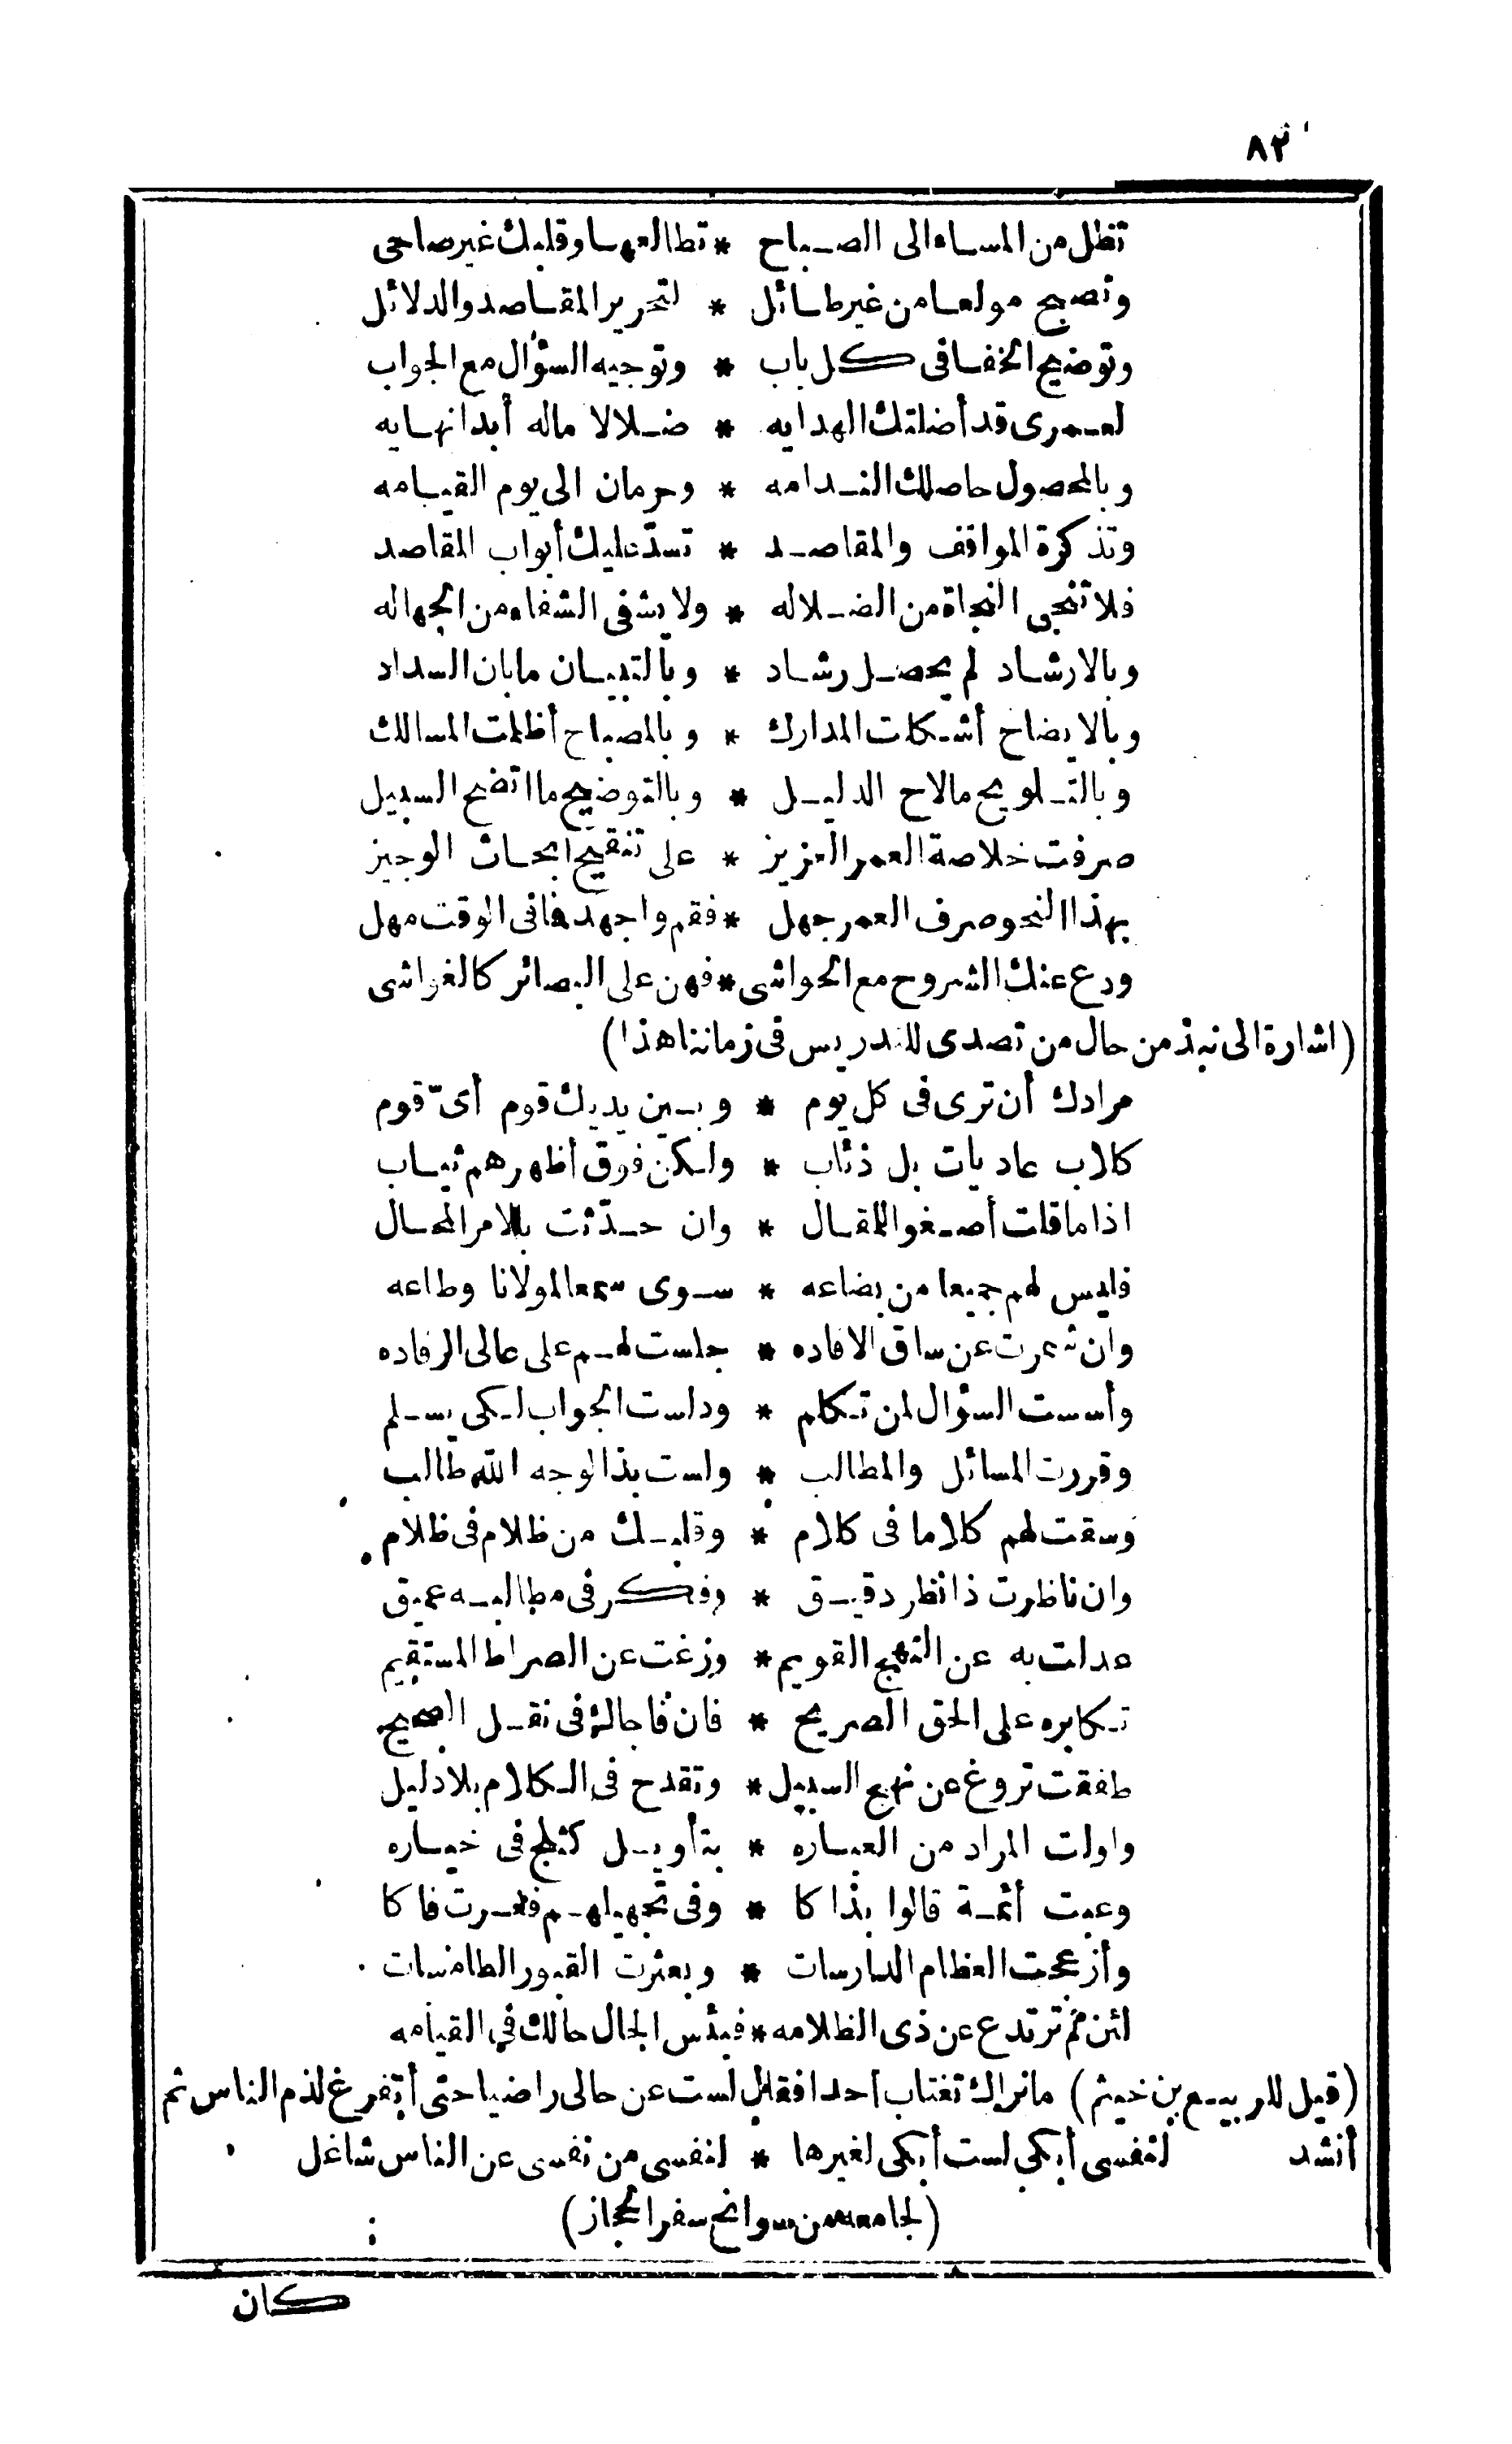 ٨٢
تظل من المساء الى الصباح * تطالعها وقلبك غير صاحى
وتصبح مولعا من غير طائل * لتحرير المقاصد والدلائل
وتوضيح الخفا فى كل باب * وتوجيه السؤال مع الجواب
لعمرى قد أضلتك الهدايه * ضلالا ماله أبدا نهايه
وبالمحصول حاصلك الندامه * وحرمان الى يوم القيامه
وتذكرة المواقف والمقاصد * تسدّ عليك أبواب المقاصد
فلا تنجى النجاة من الضلاله * ولا يشفى الشفاء من الجهاله
وبالارشاد لم يحصل رشاد * وبالتبيان مابان السداد
وبالايضاح أشكلت المدارك * وبالمصباح أظلمت المسالك
وبالتلويح مالاح الدليل * وبالتوضيح ما اتضح السبيل
صرفت خلاصة العمر العزيز * على تنقيح ابحاث الوجيز
بهذا النحو صرف العمر جهل * فقم واجهد فافى الوقت مهل
ودع عنك الشروح مع الحواشى * فهن على البصائر كالغواشى
(اشارة الى نبذ من حال من تصدى للتدريس فى زماننا هذا)
مرادك أن ترى فى كل يوم * وبين يديك قوم أىّ قوم
كلاب عاديات بل ذئاب * ولكن فوق أظهرهم ثياب
اذا ما قلت أصغوا للمقال * وان حدّثت بالامر المحال
فليس لهم جميعا من بضاعه * سوى سمعا لمولانا وطاعه
وان شمرت عن ساق الافاده * جلست لهم على عالى الرفاده
وأسست السؤال لمن تكلم * ودلست الجواب لكى يسلم
وقررت المسائل والمطالب * ولست بذا لوجه الله طالب
وسقت لهم كلاما فى كلام * وقلبك من ظلام فى ظلام
وان ناظرت ذا نظر دقيق * وفكر فى مطالبه عميق
عدلت به عن النهج القويم * وزغت عن الصراط المستقيم
تكابره على الحق الصريح * فان فاجاك فى نقل الصحيح
طفقت تروغ عن نهج السبيل * وتقدح فى الكلام بلا دليل
واولت المراد من العباره * بتأويل كثلج فى خياره
وعبت أئمة قالوا بذاكا * وفى تجهيلهم فغرت فاكا
وأزعجت العظام الدارسات * وبعثرت القبور الطامسات
لئن لم ترتدع عن ذى الظلامه * فبئس الحال حالك فى القيامه
(قيل للربيع بن خيثم) مانراك تغتاب أحدا فقال لست عن حالى راضيا حتى أتفرغ لذم الناس ثم
أنشد لنفسى أبكى لست أبكى لغيرها * لنفسى من نفسى عن الناس شاغل
(لجامعه من سوانح سفر الحجاز)
كان